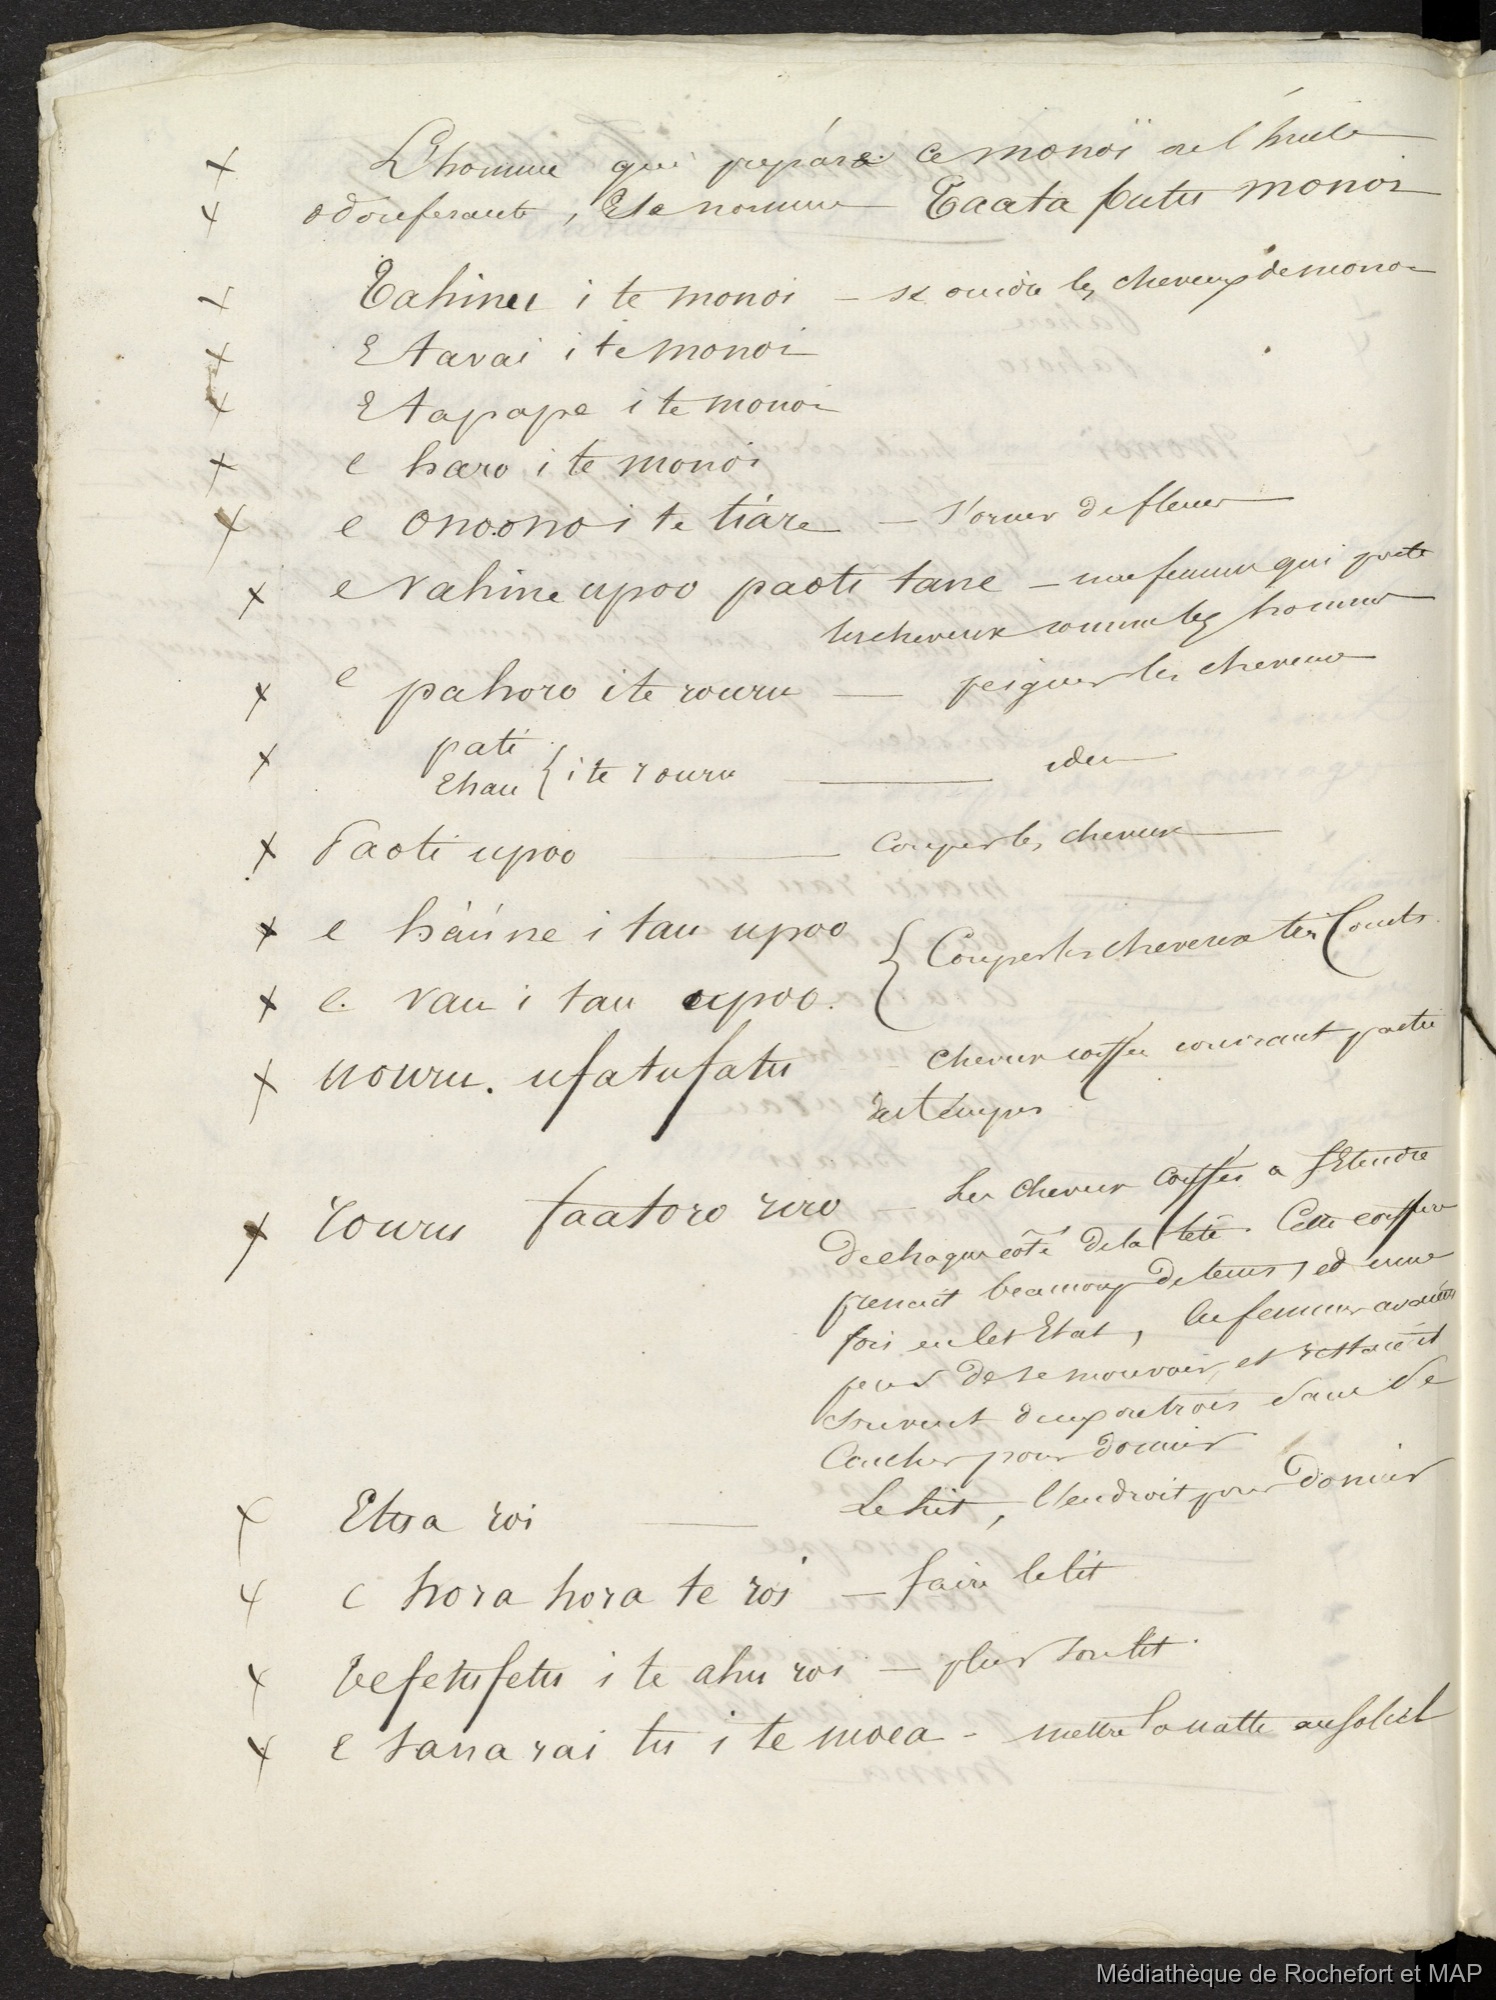 L'homme qui prépare ce monoï ou l'huile
odoriferante, se nomme Taata Putu monoi
Tahinu i te monoi – se oindre les cheveux de monoi
E tavai i te monoi
E tapape i te monoi
e haro i te monoi
e onoono i te tiáre – s'orner de fleurs
e vahine upoo paoti tane – une femme qui porte
les cheveux comme les hommes
e pahoro i te rouru — peigner les cheveux
pati
Ehau { i te rouru — idem
Paoti upoo — couper les cheveux
e háúne i tau upoo
{ Couper les cheveux très courts.
e. vau i tau upoo.
rouru. ufatufatu – cheveux coiffés couvrant partie
des tempes
rouru faatoro roro – Les cheveux coiffés a s'etendre
de chaque coté de la tête. Cette coiffure
prenait beaucoup de tems, et une
fois en cet Etat, les femmes avaient
peur de se mouvoir, et restaient
souvent deux ou trois sans se
coucher pour dormir
Etua roi — Le lit, l'endroit pour dormir
e hora hora te roi – faire le lit
Tefetufetu i te ahu roi – plier son lit.
e tana rai tu i te moea – mettre la natte au soleil
Médiathèque de Rochefort et MAP